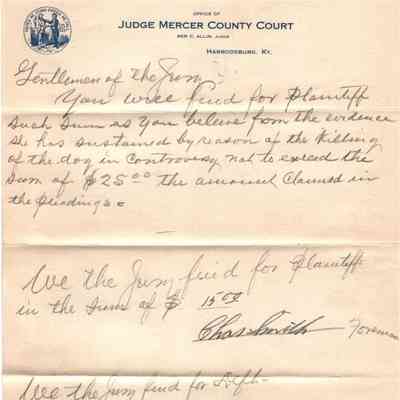 OFFICE OF
JUDGE MERCER COUNTY COURT
BEN C. ALLIN, JUDGE
HARRODSBURG, KY.
Gentlemen of the Jury
You will find for Plaintiff
such sum as you believe from the evidence
she has sustained by reason of the Killing
of the dog in controversy not to exceed the
sum of $25.00 the amount claimed in
the pleadings.
We the Jury find for Plaintiff
in the sum of $ 15.00
Chas Smith Foreman
We the Jury find for Deft.